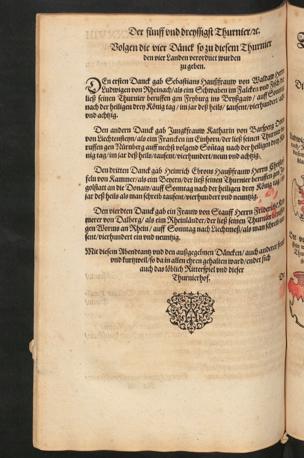 Der fünff und dreyssigst Thurnier/ꝛc.
Volgen die vier Dänck so zu diesem Thurnier
den vier Landen verordnet wurden
zu geben.
DEn ersten Danck gab Sebastians Haußfrauw von
Ludwigen von Rheinach/als ein Schwaben im Falcken und
ließ seinen Thurnier beruffen gen Fryburg ins Bryßgaw/auff Sontag
nach der heiligen drey König tag/im jar deß heils/tausent/vierhundert
und achtzig.
Den andern Danck gab Jungkfrauw Katharin von
von Liechtensteyn/als ein Francken im Einhorn/der ließ seinen Thurnier
ruffen gen Nürnberg auff nechst volgend Sontag nach der heiligen drey
nig tag/im jar deß heils/tausent/vierhundert/neun und achtzig.
Den dritten Danck gab Heinrich Ebrons Haußfrauw Herrn
feln von Kammer/als ein Beyern/der ließ seinen Thurnier beruffen gen
golstatt an die Donaw/auff Sontag nach der heiligen drey König tag/
jar deß heils als man schreib tausent/vierhundert und neuntzig.
Den vierdten Danck gab ein Frauw von Stauff Herrn Friderichs
merer von Dalberg/als ein Rheinländer/der ließ seinen Thurnier
gen Worms an Rhein/auff Sontag nach Liechtmeß/als man schreib
sent/vierhundert ein und neuntzig.
Mit diesem Abendtantz und den außgegebnen Däncken/auch anderer
und kurtzweil/so da in allen ehren gehalten ward/endet sich
auch das löblich Ritterspiel und dieser
Thurnierhof.